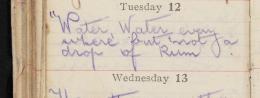 Tuesday 12
"Water, Water every
where but not a
drop of Rum".
Wednesday 13